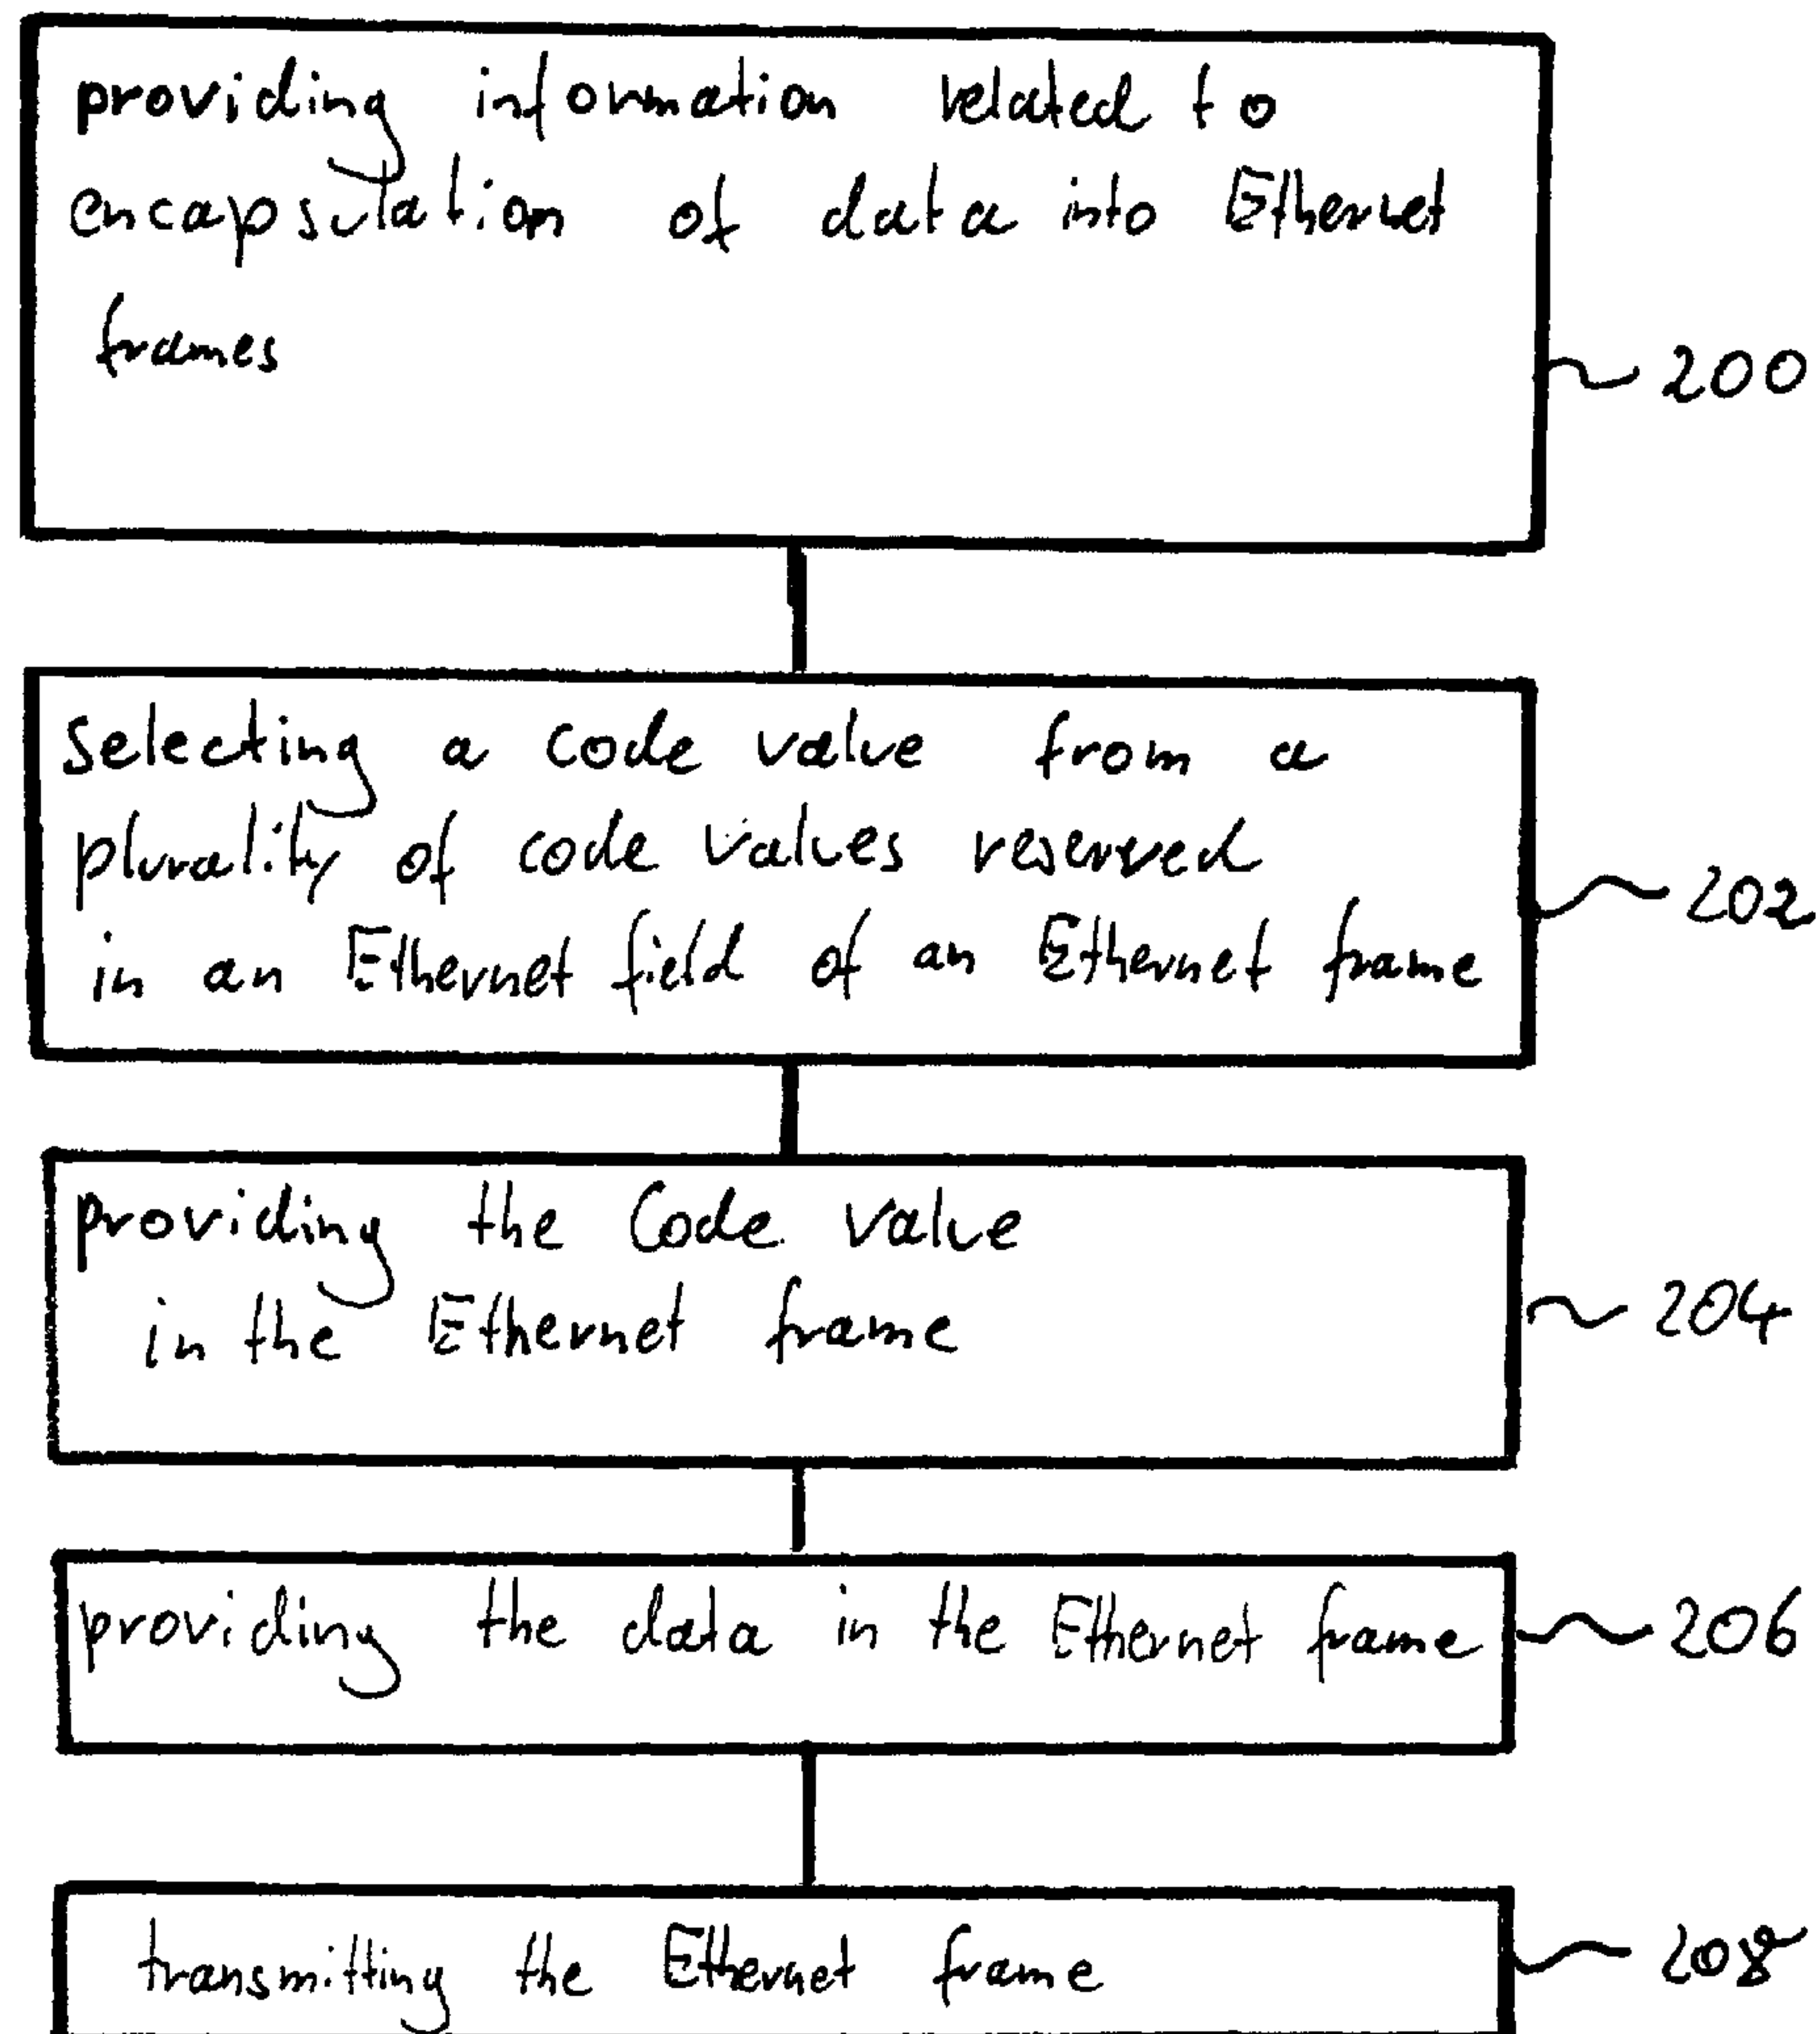 providing information related to
encapsulation of data into Ethernet
frames
200
selecting a code value from a
plurality of code values reserved
in an Ethernet field of an Ethernet frame
202
providing the Code value
in the Ethernet frame
204
providing the data in the Ethernet frame
206
transmitting the Ethernet frame
208